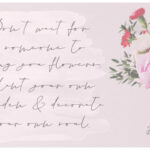 Don't wait for
someone to
ng you flowers
lant your own
den & decorate
our own soul